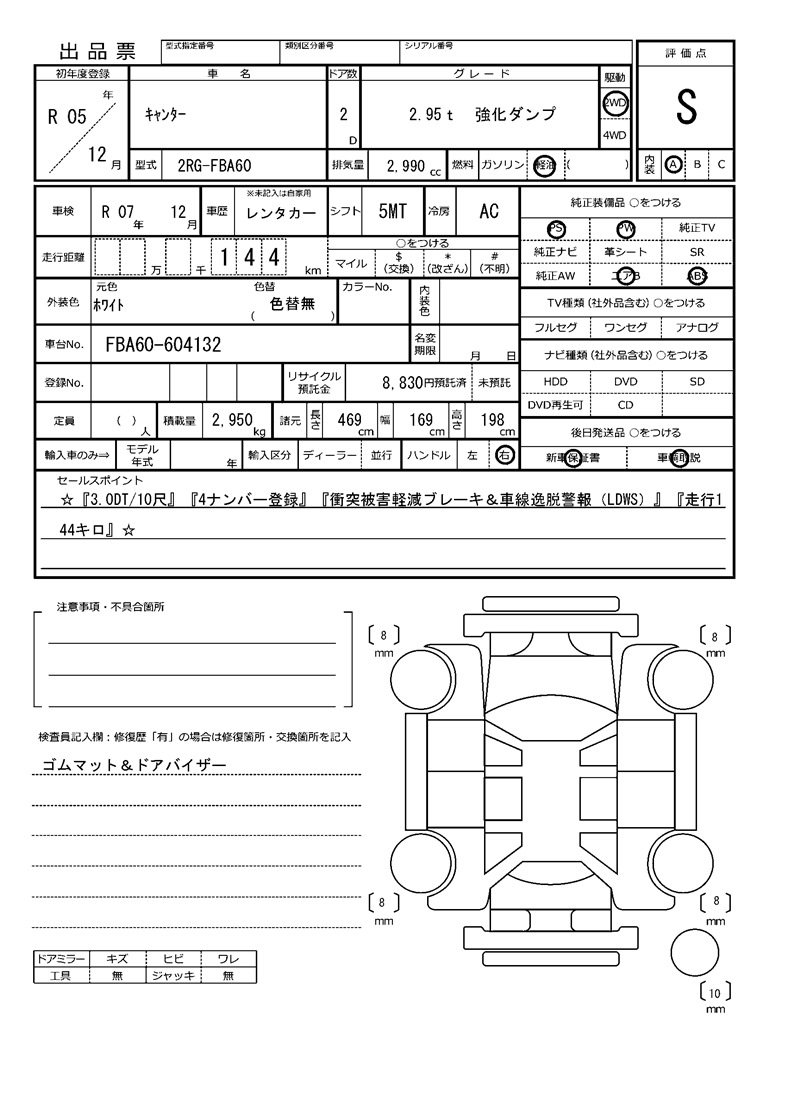 出品票
型式指定番号 類別区分番号 シリアル番号
評価点
S
内装 A B C
初年度登録 車名 ドア数 グレード 駆動
R 05 年 12 月 ｷｬﾝﾀｰ 2 D 2.95ｔ 強化ダンプ 2WD 4WD
型式 2RG-FBA60 排気量 2,990 cc 燃料 ガソリン 軽油 ( )
車検 R 07 年 12 月 車歴 ※未記入は自家用 レンタカー シフト 5MT 冷房 AC
走行距離 万 千 1 4 4 km ○をつける
マイル $(交換) *(改ざん) #(不明)
外装色 元色 ﾎﾜｲﾄ 色替 ( 色替無 ) カラーNo. 内装色
車台No. FBA60-604132 名変期限 月 日
登録No. リサイクル預託金 8,830円預託済 未預託
定員 ( ) 人 積載量 2,950 kg 諸元 長さ 469 cm 幅 169 cm 高さ 198 cm
輸入車のみ⇒ モデル年式 年 輸入区分 ディーラー 並行 ハンドル 左 右
純正装備品 ○をつける
PS PW 純正TV
純正ナビ 革シート SR
純正AW エアB ABS
TV種類(社外品含む)○をつける
フルセグ ワンセグ アナログ
ナビ種類(社外品含む)○をつける
HDD DVD SD
DVD再生可 CD
後日発送品 ○をつける
新車保証書 車輌取説
セールスポイント
☆『3.0DT/10尺』『4ナンバー登録』『衝突被害軽減ブレーキ＆車線逸脱警報（LDWS）』『走行1
44キロ』☆
注意事項・不具合箇所
検査員記入欄：修復歴「有」の場合は修復箇所・交換箇所を記入
ゴムマット＆ドアバイザー
ドアミラー キズ ヒビ ワレ
工具 無 ジャッキ 無
〔 8 〕mm
〔 8 〕mm
〔 8 〕mm
〔 8 〕mm
〔 10 〕mm